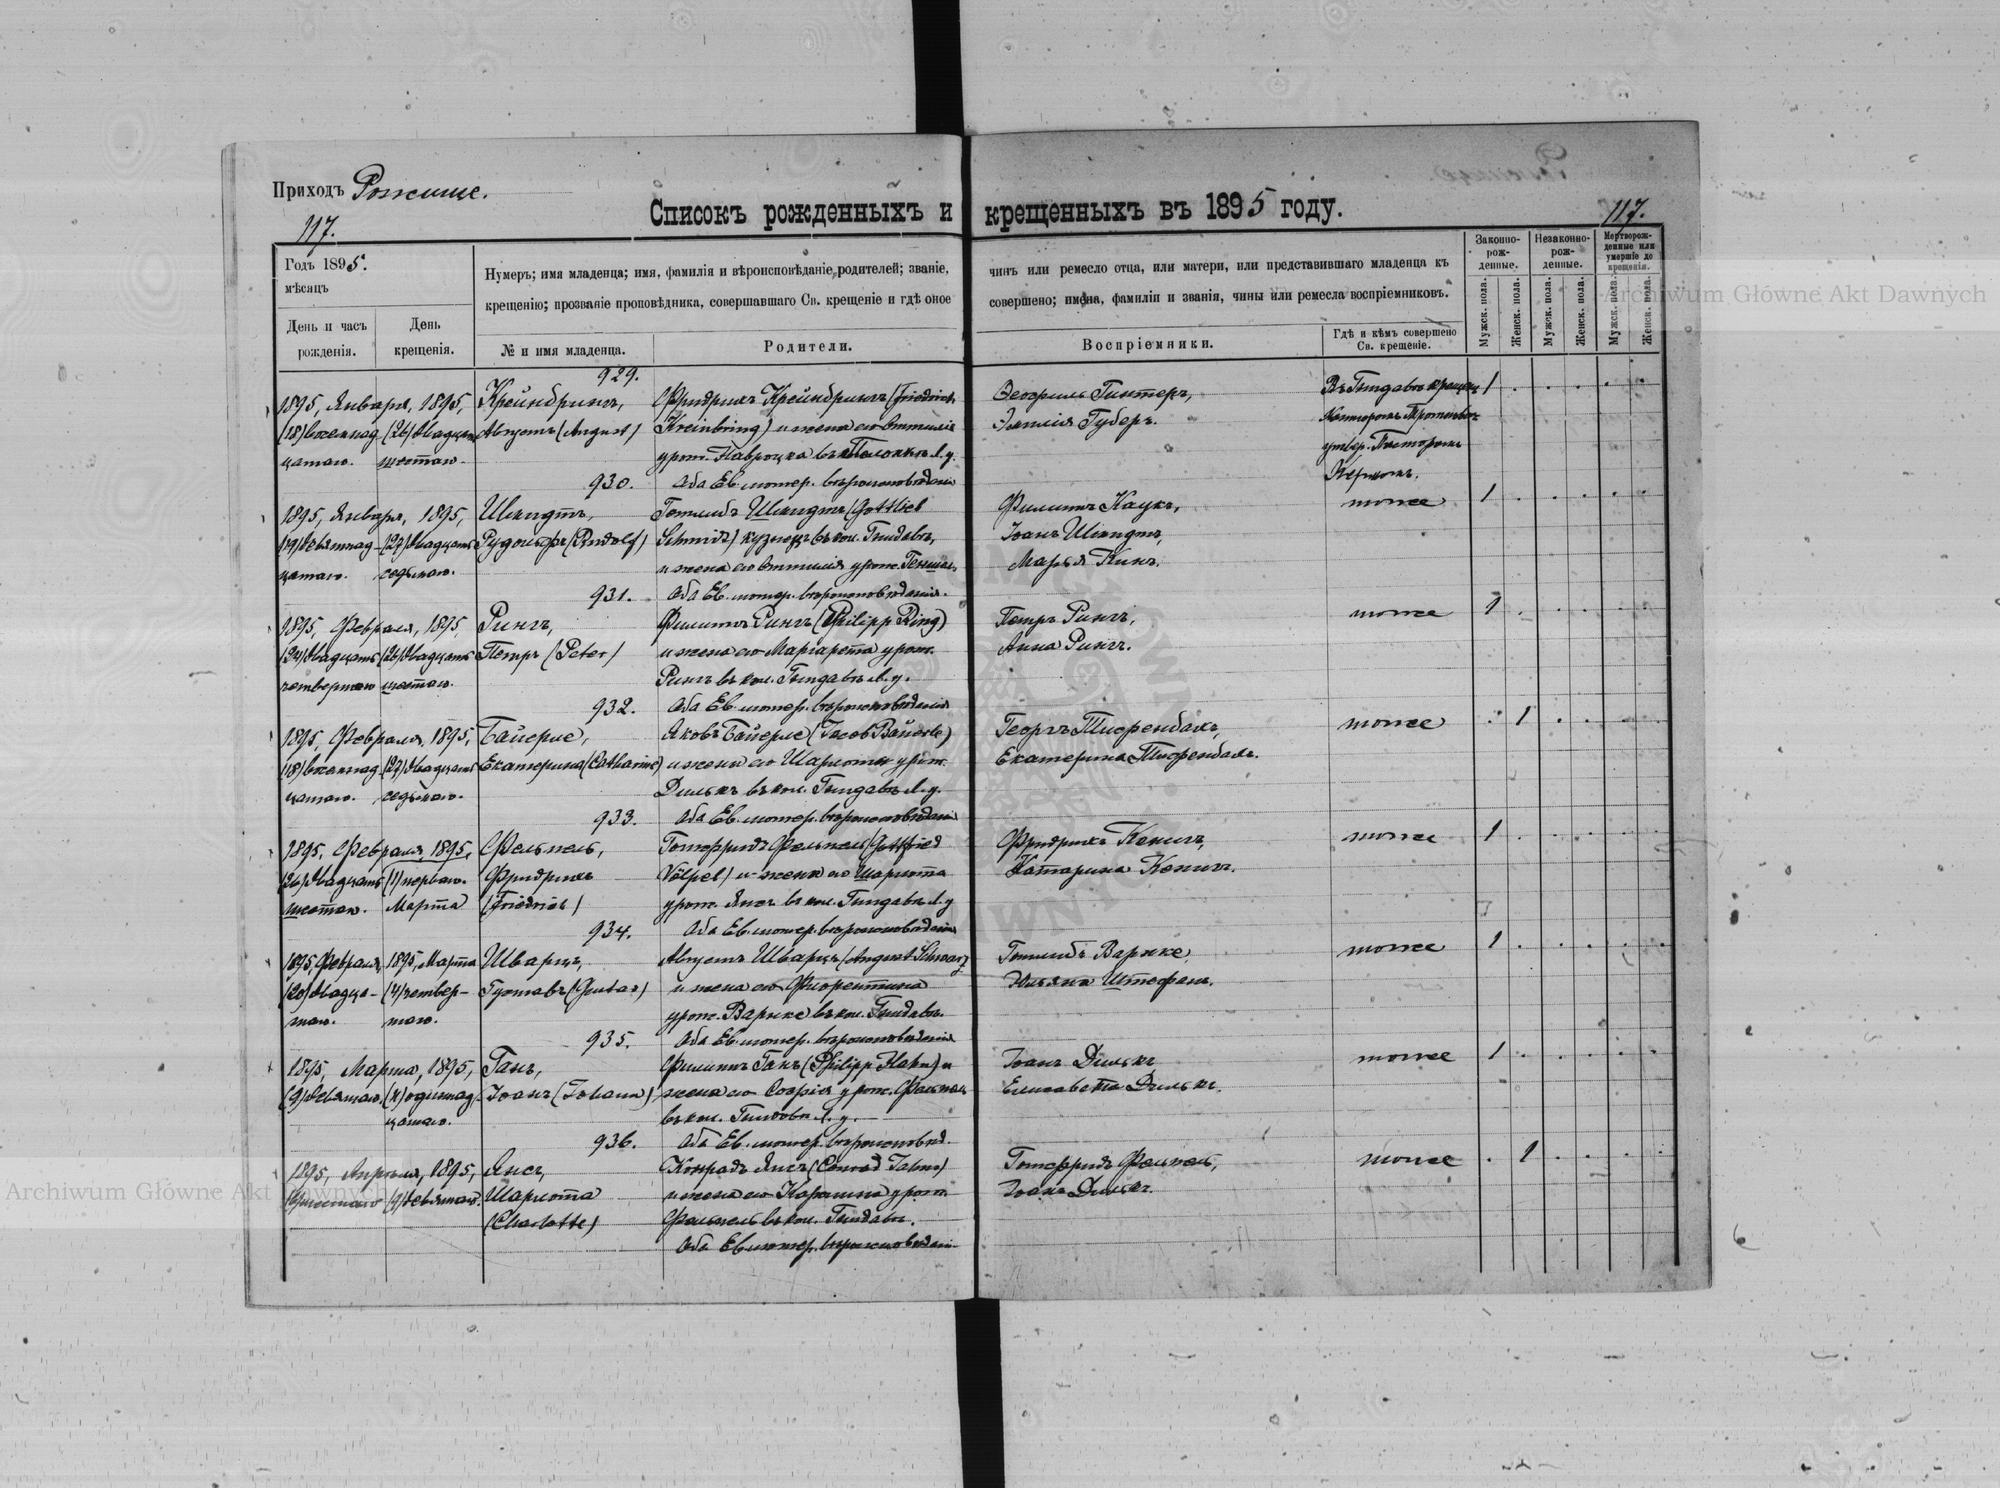 Приходъ Рожище.
117.
Списокъ рожденныхъ и крещенныхъ въ 1895 году.
117.
Годъ 1895.
мѣсяцъ
День и часъ рожденія.
День крещенія.
Нумеръ; имя младенца; имя, фамилія и вѣроисповѣданіе родителей; званіе, чинъ или ремесло отца, или матери, или представившаго младенца къ
крещенію; прозваніе проповѣдника, совершавшаго Св. крещеніе и гдѣ оное совершено; имена, фамиліи и званія, чины или ремесла воспріемниковъ.
№ и имя младенца.
Родители.
Воспріемники.
Гдѣ и кѣмъ совершено Св. крещеніе.
Законно-рож-денные.
Незаконно-рож-денные.
Мертворож-денные или умершіе до крещенія.
Мужск. пола.
Женск. пола.
Мужск. пола.
Женск. пола.
Мужск. пола.
Женск. пола.
929.
1895, Января, 1895, Крейнбрингъ, Фридрихъ Крейнбрингъ (Friedrich
(18) восемнад- (26) двадцать Августъ (August) Kreinbring) и жена его Оттилія
цатаго. шестаго. урож. Навроцка въ
Теофиль Гинтеръ,
Эмилія Губеръ.
утвер. Пасторомъ
1
930.
Оба Ев. лютер. вѣроисповѣданія
1895, Января, 1895, Шмидтъ, Готлибъ Шмидтъ (Gottlieb
(19) девятнад- (27) двадцать Рудольфъ (Rudolf) Schmidt) кузнецъ въ кол. Гнидавѣ,
цатаго. седьмаго. и жена его Оттилія урож.
Филиппъ Каукъ,
Іоанъ Шмидтъ,
Марья Кинъ.
тоже
1
931.
Оба Ев. лютер. вѣроисповѣданія.
1895, Февраля, 1895, Рингъ, Филиппъ Рингъ (Philipp Ring)
(24) двадцать (26) двадцать Петръ (Peter) и жена его Маргарета урож.
четвертаго шестаго. Рингъ въ кол. Гнидавѣ Л. у.
Петръ Рингъ,
Анна Рингъ.
тоже
1
932.
Оба Ев. лютер. вѣроисповѣданія
1895, Февраля, 1895, Байерле, Яковъ Байерле (Jacob Bäuerle)
(18) восемнад- (27) двадцать Екатерина (Catharine) и жена его Шарлота урож.
цатаго. седьмаго. Дилькъ въ кол. Гнидавѣ Л. у.
Георгъ Тиофенбахъ,
Екатерина Тиофенбахъ.
тоже
1
933.
Оба Ев. лютер. вѣроисповѣданія
1895, Февраля, 1895, Фельпель, Готфридъ Фельпель (Gottfried
(26) двадцать (1) перваго. Фридрихъ Völpel) и жена его Шарлота
шестаго. Марта (Friedrich) урож. Янсъ въ кол. Гнидавѣ Л. у
Фридрихъ Кенигъ,
Катарина Кенигъ.
тоже
1
934.
Оба Ев. лютер. вѣроисповѣданія
1895, Февраля, 1895, Марта Шварцъ, Августъ Шварцъ (August Schwarz)
(20) двадца- (4) четвер- Густавъ (Gustav) и жена его Флорентина
таго. таго. урож. Варнке въ кол. Гнидавѣ.
Готлибъ Варнке,
Юльяна Штефанъ.
тоже
1
935.
Оба Ев. лютер. вѣроисповѣданія
1895, Марта, 1895, Ганъ, Филиппъ Ганъ (Philipp Hahn) и
(9) девятаго (11) одиннад- Іоанъ (Johann) жена его Софія урож. Фельпель
цатаго. въ кол. Гнидовѣ Л. у.
Іоанъ Дилькъ
Елисавета Дилькъ.
тоже
1
936.
Оба Ев. лютер. вѣроисповѣд.
1895, Апрѣля, 1895, Янсъ, Конрадъ Янсъ (Conrad Jahns)
(6) шестаго (9) девятаго. Шарлота и жена его Каролина урож.
(Charlotte) Фельпель въ кол. Гнидавѣ.
Оба Ев. лютер. вѣроисповѣданія
Готфридъ Фельпель,
Іоанъ Дилькъ.
тоже
1
Archiwum Główne Akt Dawnych
Archiwum Główne Akt Dawnych